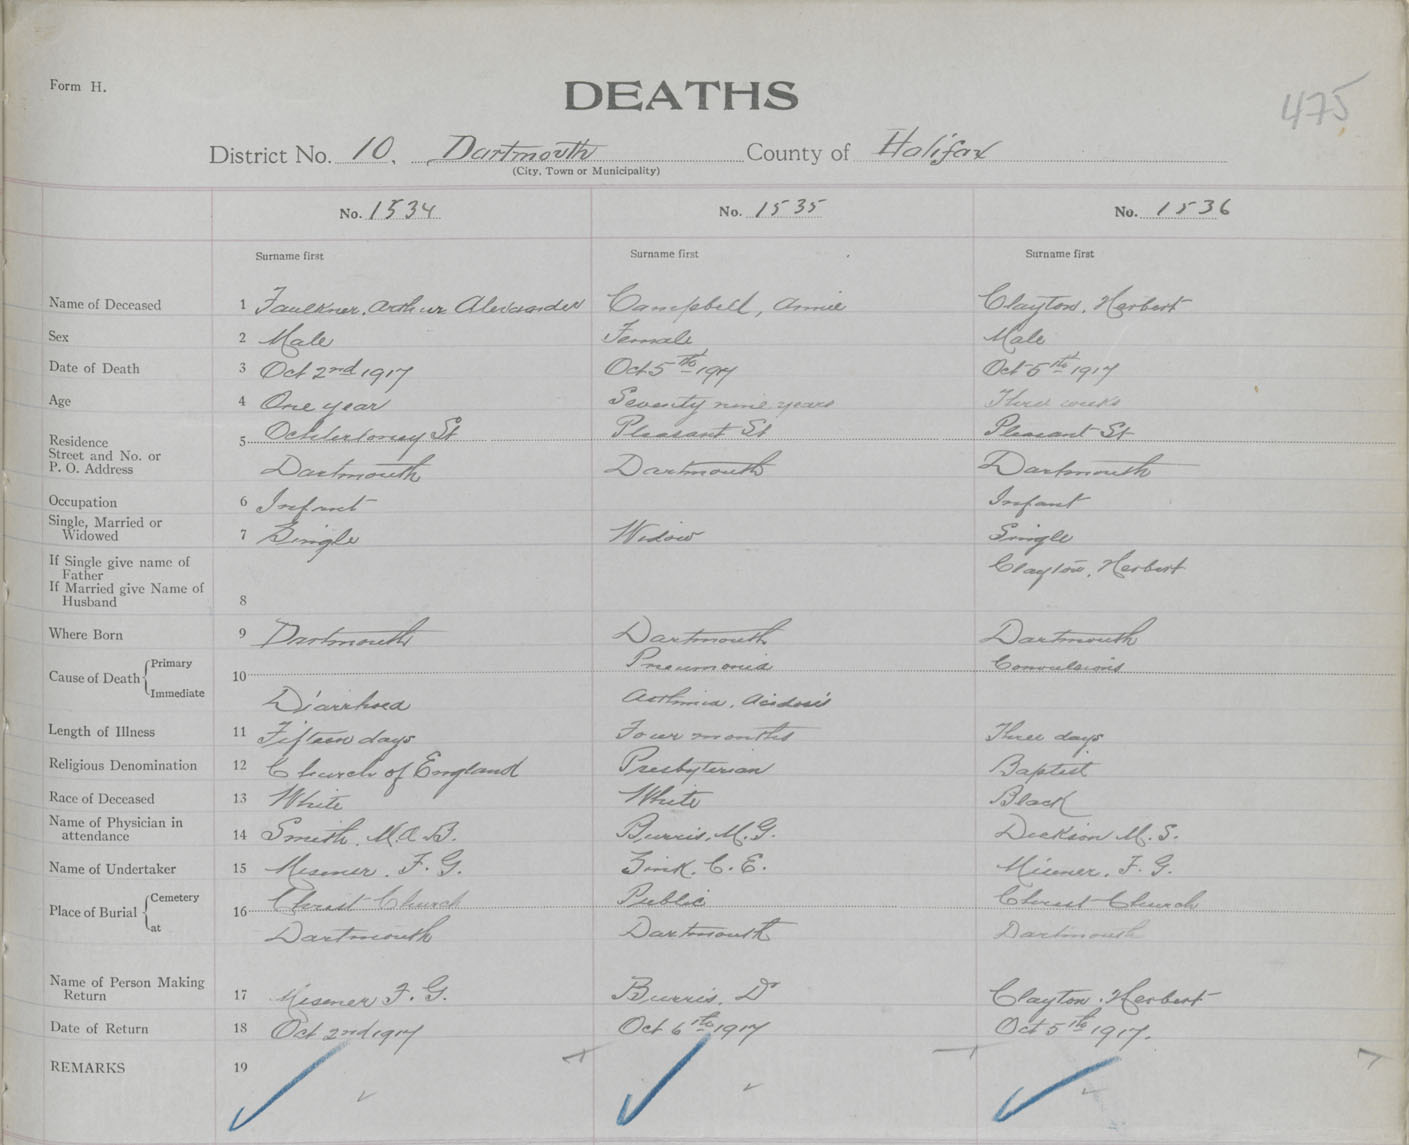 Form H.
DEATHS
475
District No. 10. Dartmouth County of Halifax
(City, Town or Municipality)
No. 1534 No. 1535 No. 1536
Surname first Surname first Surname first
Name of Deceased 1 Faulkner, Arthur Alexander Campbell, Annie Clayton, Herbert
Sex 2 Male Female Male
Date of Death 3 Oct 2nd 1917 Oct 5th 1917 Oct 5th 1917
Age 4 One year Seventy nine years Three weeks
Residence 5 Ochterloney St Pleasant St Pleasant St
Street and No. or
P. O. Address Dartmouth Dartmouth Dartmouth
Occupation 6 Infant Infant
Single, Married or
Widowed 7 Single Widow Single
If Single give name of Clayton, Herbert
Father
If Married give Name of
Husband 8
Where Born 9 Dartmouth Dartmouth Dartmouth
Primary Pneumonia Convulsions
Cause of Death 10
Immediate Diarrhoea Asthma, Acidosis
Length of Illness 11 Fifteen days Four months Three days
Religious Denomination 12 Church of England Presbyterian Baptist
Race of Deceased 13 White White Black
Name of Physician in
attendance 14 Smith, M.A.B. Burris, M.G. Dickson M.S.
Name of Undertaker 15 Misener, F.G. Zink, C.E. Misener, F.G.
Cemetery Christ Church Public Christ Church
Place of Burial 16
at Dartmouth Dartmouth Dartmouth
Name of Person Making
Return 17 Misener F.G. Burris, Dr Clayton, Herbert
Date of Return 18 Oct 2nd 1917 Oct 6th 1917 Oct 5th 1917.
REMARKS 19